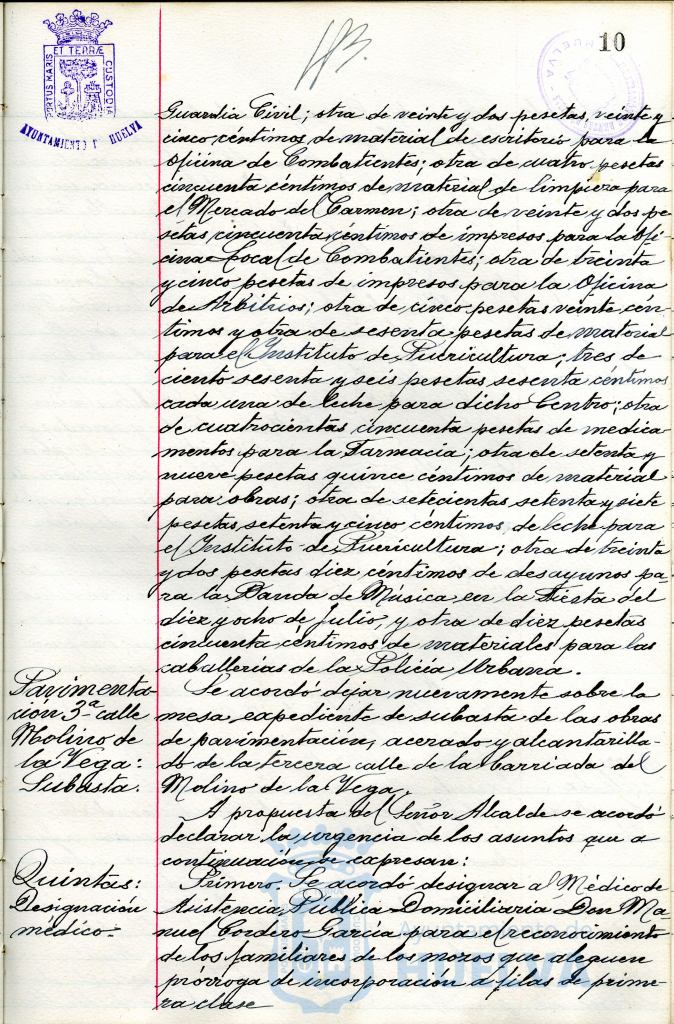 10
PORTUS MARIS ET TERRÆ CUSTODIA
AYUNTAMIENTO DE HUELVA
HUELVA
Guardia Civil; otra de veinte y dos pesetas, veinte y
cinco, céntimos de material de escritorio para la
Oficina de Combatientes; otra de cuatro pesetas
cincuenta céntimos de material de limpieza para
el Mercado del Carmen; otra de veinte y dos pe
setas, cincuenta céntimos de impresos para la Ofi
cina Local de Combatientes; otra de treinta
y cinco pesetas de impresos para la Oficina
de Arbitrios; otra de cinco pesetas veinte cén
timos y otra de sesenta pesetas de material
para el Instituto de Puericultura; tres de
ciento sesenta y seis pesetas sesenta céntimos
cada una de leche para dicho Centro; otra
de cuatrocientas cincuenta pesetas de medica
mentos para la Farmacia; otra de setenta y
nueve pesetas quince céntimos de material
para obras; otra de setecientas setenta y siete
pesetas, setenta y cinco céntimos de leche para
el Instituto de Puericultura; otra de treinta
y dos pesetas diez céntimos de desayunos pa
ra la Banda de Música en la Fiesta del
diez y ocho de Julio, y otra de diez pesetas
cincuenta céntimos de materiales para las
caballerías de la Policía Urbana.
Pavimenta-
ción 3ª calle
Molino de
la Vega:
Subasta.
Se acordó dejar nuevamente sobre la
mesa, expediente de subasta de las obras
de pavimentación, acerado y alcantarilla-
do de la tercera calle de la barriada del
Molino de la Vega.
A propuesta del Señor Alcalde se acordó
declarar la urgencia de los asuntos que a
continuación se expresan:
Quintas:
Designación
médico.
Primero. Se acordó designar al Médico de
Asistencia Pública Domiciliaria Don Ma
nuel Cordero García para el reconocimiento
de los familiares de los mozos que aleguen
prórroga de incorporación a filas de prime-
ra clase
Ayuntamiento de
HUELVA